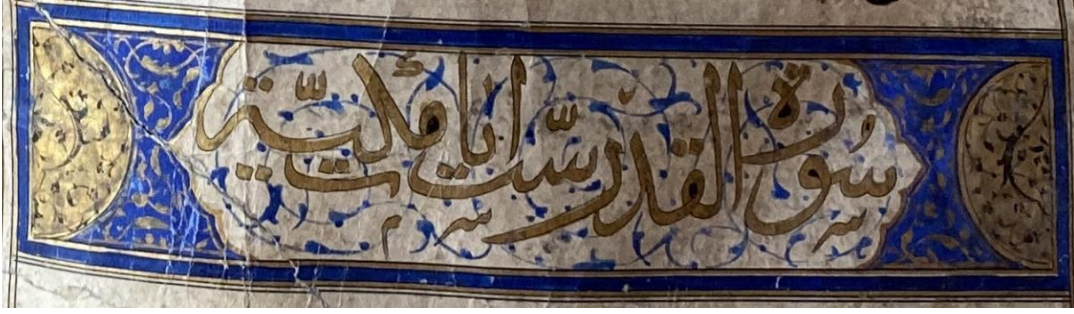 سُورة القدر ستّ ايات مكيّة